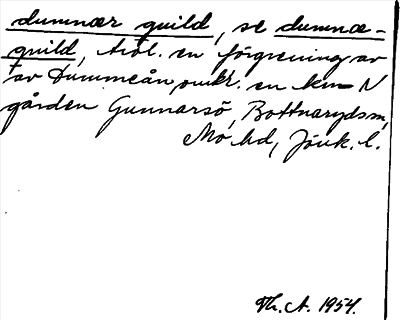 dummær quild, se dummæ-
quild, trol. en förgrening av
av Dummeån omkr. en km N
gården Gunnarsö, Bottnarydsn,
Mo hd, Jönk. l.
Th. A. 1954.